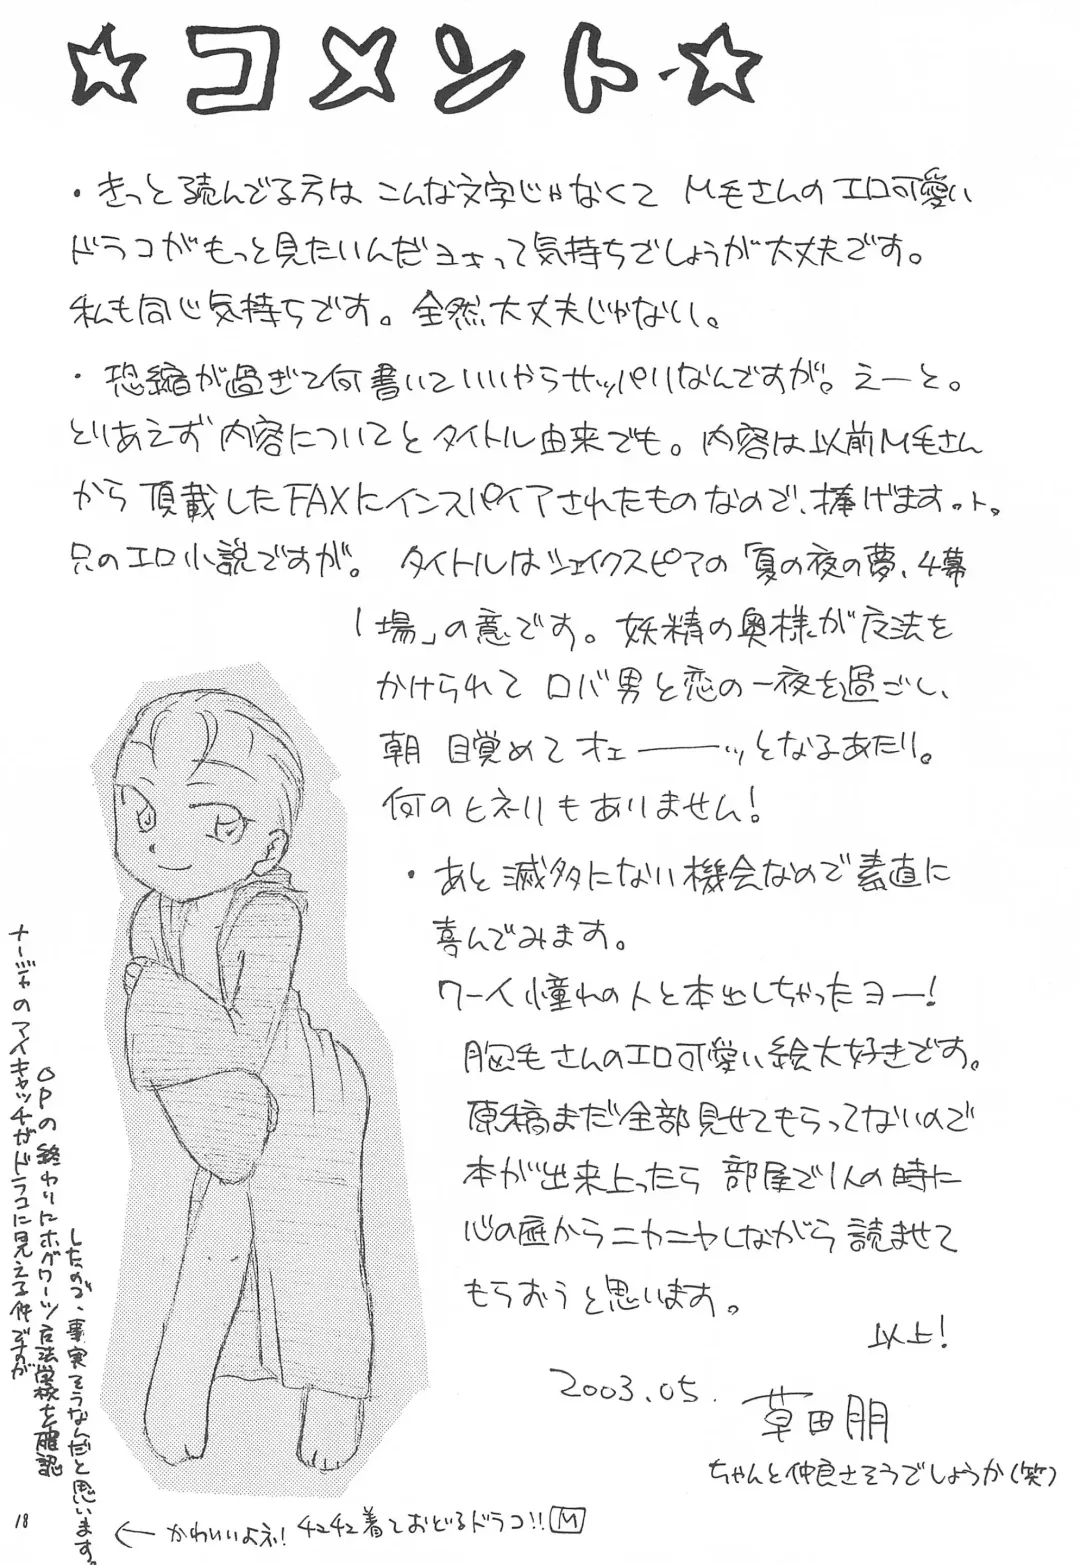 ☆コメント☆
・きっと読んでる方は こんな文字じゃなくて M毛さんの エロ可愛い
ドラコがもっと見たいんだヨォって気持ちでしょうが大丈夫です。
私も同じ気持ちです。全然大丈夫じゃない。
・恐縮が過ぎて何書いていいやらサッパリなんですが。えーと。
とりあえず 内容についてと タイトル由来でも。内容は以前M毛さん
から 頂戴したFAXにインスパイアされたものなので、捧げます。
只のエロ小説ですが。 タイトルはシェイクスピアの「夏の夜の夢、4幕
1場」の意です。妖精の奥様が魔法を
かけられて ロバ男と恋の一夜を過ごし、
朝 目覚めて オェーーーッとなるあたり。
何のヒネリもありません!
・あと 滅多にない機会なので素直に
喜んでみます。
ワーイ憧れの人と本出しちゃったヨー!
胸毛さんのエロ可愛い絵大好きです。
原稿まだ全部見せてもらってないので
本が出来上ったら 部屋で1人の時に
心の底からニヤニヤしながら 読ませて
もらおうと思います。
以上!
2003.05.
草田朋
ちゃんと仲良さそうでしょうか(笑)
ナージャのアイキャッチがドラコに見える件ですが
OPの終わりにホグワーツ魔法学校を確認
したので、事実そうなんだと思います。
← かわいいよネ! 着ておどるドラコ!! M
18